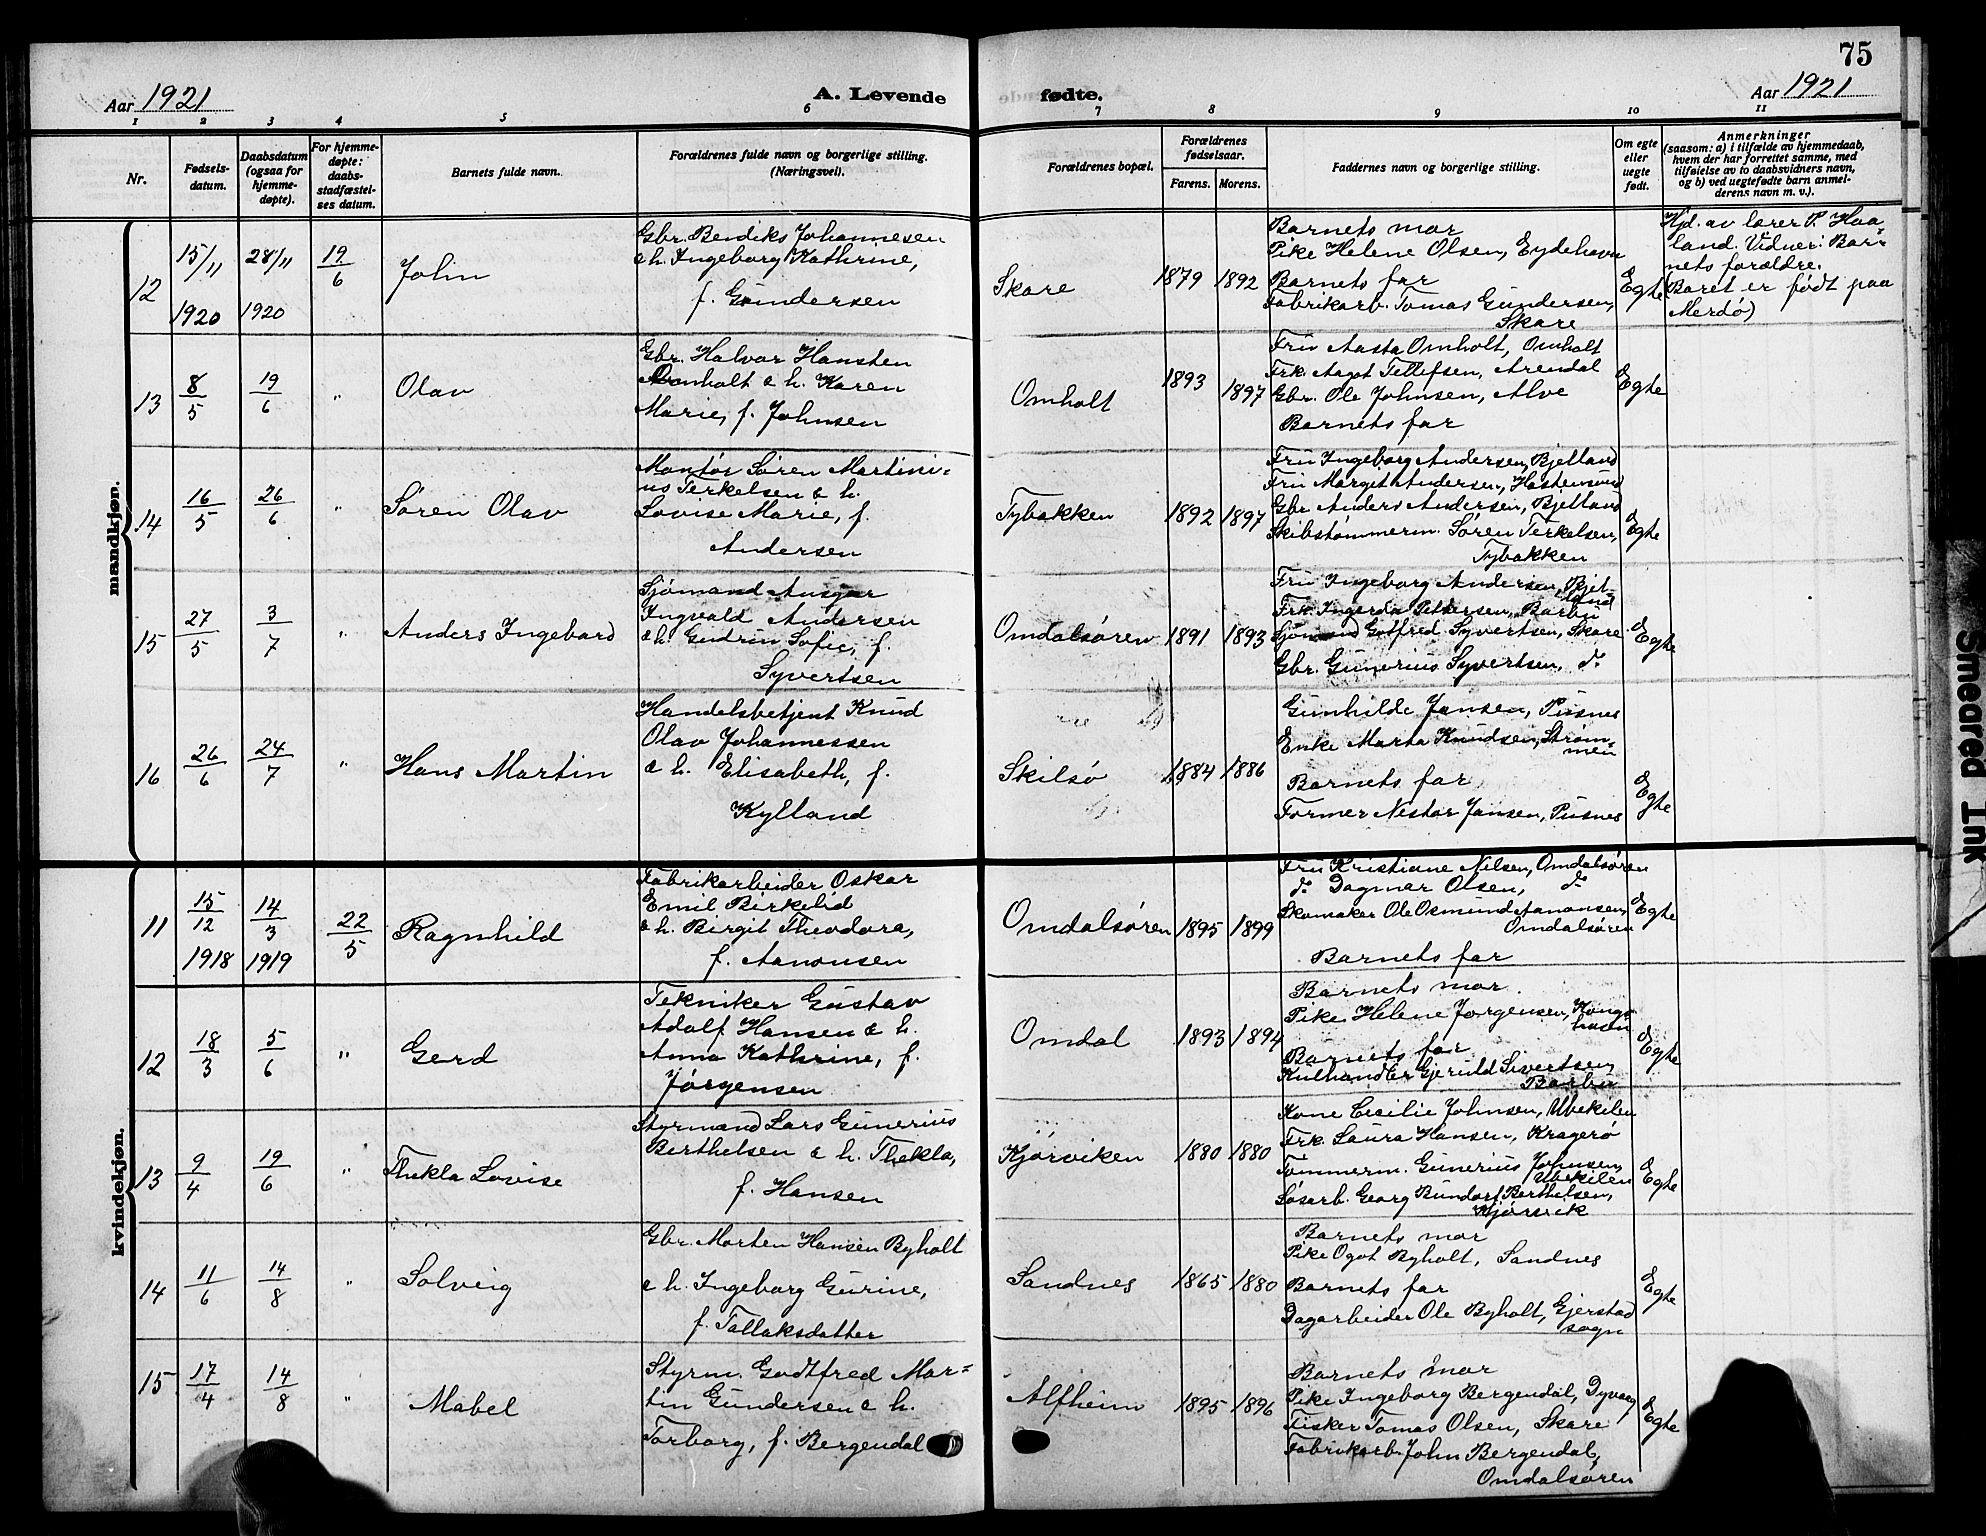 75
Aar 1921
A. Levende
fødte.
Aar 1921
1 2 3 4 5 6 7 8 9 10 11
Nr.
Fødsels-
datum.
Daabsdatum
(ogsaa for
hjemme-
døpte).
For hjemme-
døpte:
daabs-
stadfæstel-
ses datum.
Barnets fulde navn.
Forældrenes fulde navn og borgerlige stilling.
(Næringsvei).
Forældrenes bopæl.
Forældrenes
fødselsaar.
Farens. Morens.
Faddernes navn og borgerlige stilling.
Om egte
eller
uegte
født.
Anmerkninger
(saasom: a) i tilfælde av hjemmedaab,
hvem der har forrettet samme, med
tilføielse av to daabsvidners navn,
og b) ved uegtefødte barn anmel-
derens navn m. v.).
mandkjøn.
12
15/11
1920
28/11
1920
19/6
John
Gbr. Bendiks Johannesen
& h. Ingeborg Kathrine,
f. Gundersen
Skare
1879 1892
Barnets mor
Pike Helene Olsen, Eydehavn
Barnets far
Fabrikarb. Tomas Gundersen,
Skare
Egte
Hjd. av lærer P. Haa-
land. Vidner: Bar-
nets forældre.
(Baret er født paa
Merdø)
13
8/5
19/6
"
Olav
Gbr. Halvor Hansten
Omholt & h. Karen
Marie, f. Johnsen
Omholt
1893 1897
Fru Aasta Omholt, Omholt
Frk. Aagot Tellefsen, Arendal
Gbr. Ole Johnsen, Alve
Barnets far
Egte
14
16/5
26/6
"
Søren Olav
Montør Søren Martini-
us Terkelsen & h.
Lovise Marie, f.
Andersen
Tybakken
1892 1897
Fru Ingeborg Andersen, Bjelland
Fru Margit Andersen, Hastensund
Gbr. Anders Andersen, Bjelland
Skibstømmerm. Søren Terkelsen,
Tybakken
Egte
15
27/5
3/7
"
Anders Ingebard
Sjømand Ansgar
Ingvald Andersen
& h. Gudrun Sofie, f.
Syvertsen
Omdalsøren
1891 1893
Fru Ingeborg Andersen, Bjel-
land
Frk. Ingerda Pettersen, Barbu
Sjømand Gotfred Syvertsen, Skare
Gbr. Gunerius Syvertsen, do
Egte
16
26/6
24/7
"
Hans Martin
Handelsbetjent Knud
Olav Johannessen
& h. Elisabeth, f.
Kylland
Skilsø
1884 1886
Gunhilde Jansen, Pusnes
Enke Marta Knudsen, Strøm-
men
Barnets far
Former Nestor Jansen, Pusnes
Egte
kvindekjøn.
11
15/12
1918
14/3
1919
22/5
Ragnhild
Fabrikarbeider Oskar
Emil Birkelid
& h. Birgit Theodora,
f. Aanonsen
Omdalsøren
1895 1899
Fru Kristiane Nilsen, Omdalsøren
do Dagmar Olsen, do
Skomaker Ole Osmund Aanonsen,
Omdalsøren
Barnets far
Egte
12
18/3
5/6
"
Gerd
Tekniker Gustav
Adolf Hansen & h.
Anna Kathrine, f.
Jørgensen
Omdal
1893 1894
Barnets mor
Pike Helene Jørgensen, Kongs-
havn
Barnets far
Kulhandler Gjeruld Sivertsen,
Barbu
Egte
13
9/4
19/6
"
Thekla Lovise
Styrmand Lars Gunerius
Berthelsen & h. Thekla,
f. Hansen
Kjørviken
1880 1880
Kone Cecilie Johnsen, Ubekilen
Frk. Laura Hansen, Kragerø
Tømmerm. Gunerius Johnsen,
Ubekilen
Løsarb. Georg Bundorf Berthelsen,
Kjørvik
Egte
14
11/6
14/8
"
Solveig
Gbr. Morten Hansen Byholt
& h. Ingeborg Gurine,
f. Tallaksdatter
Sandnes
1865 1880
Barnets mor
Pike Ogot Byholt, Sandnes
Barnets far
Dagarbeider Ole Byholt, Gjerstad
sogn
Egte
15
17/4
14/8
"
Mabel
Styrm. Godtfred Mar-
tin Gundersen & h.
Torborg, f. Bergendal
Alfheim
1895 1896
Barnets mor
Pike Ingeborg Bergendal, Dyvaag
Fisker Tomas Olsen, Skare
Fabrikarb. John Bergendal,
Omdalsøren
Egte
Smeared Ink